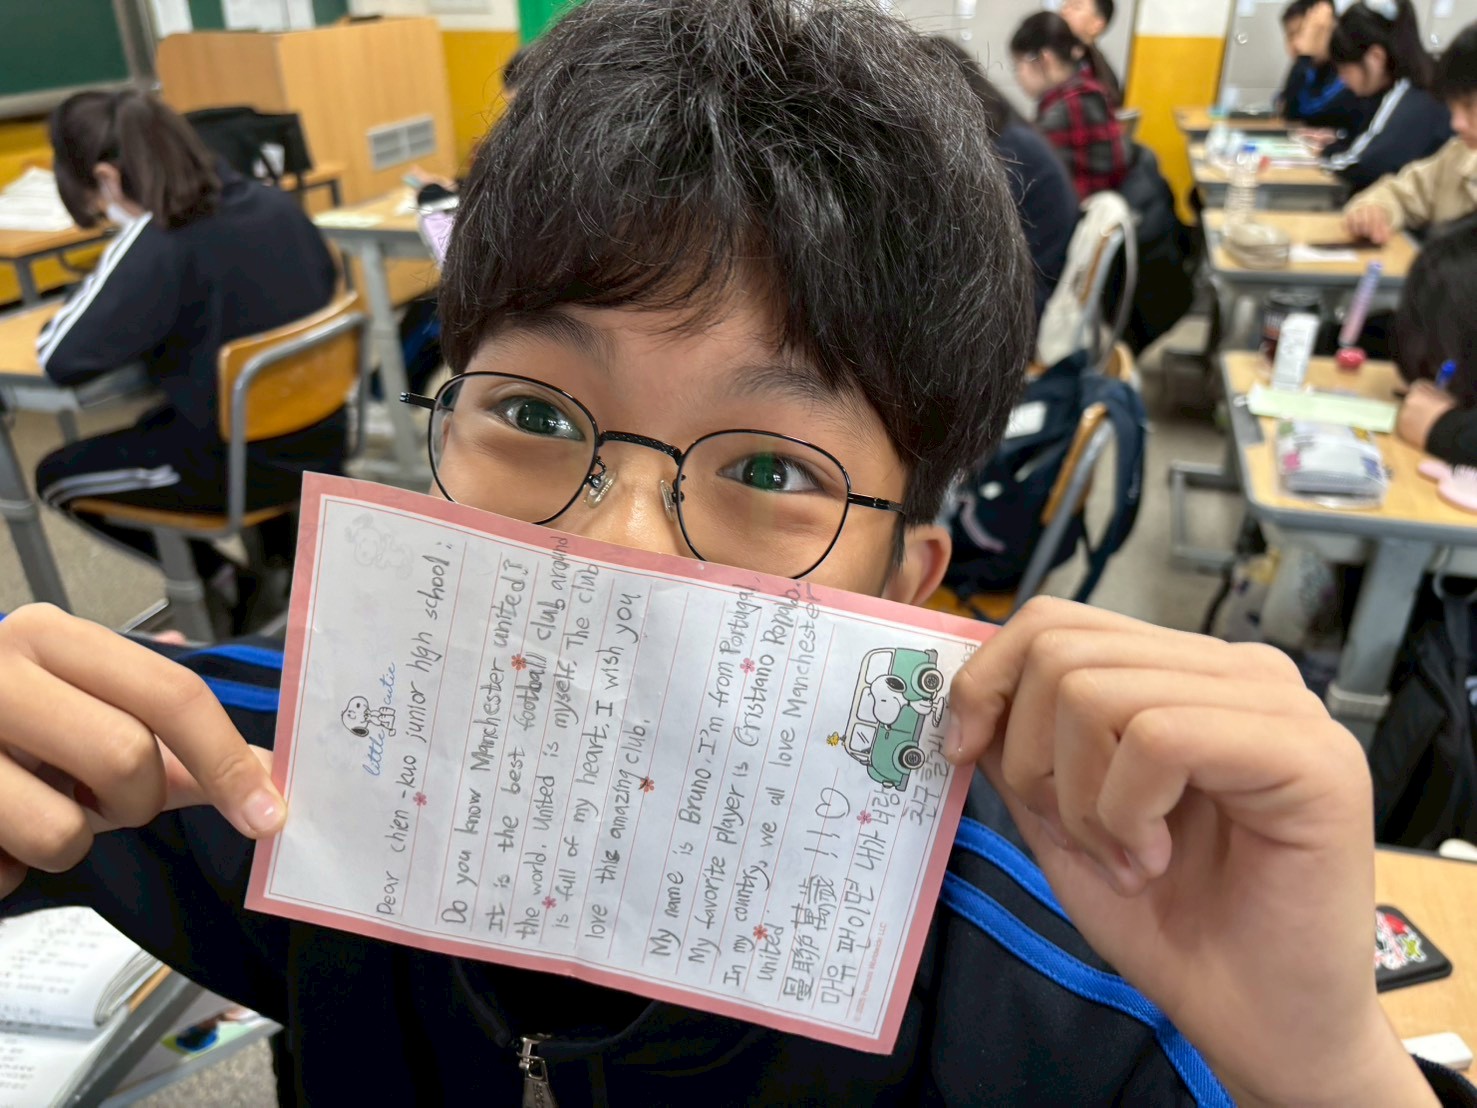 little cutie
Dear chien-kuo junior high school:
Do you know Manchester united?
It is the best football club around
the world. United is myself. The club
is full of my heart. I wish you
love this amazing club.
My name is Bruno. I'm from Portugal.
My favorite player is Cristiano Ronaldo.
In my country, we all love Manchester
united.
曼聯萬歲!!